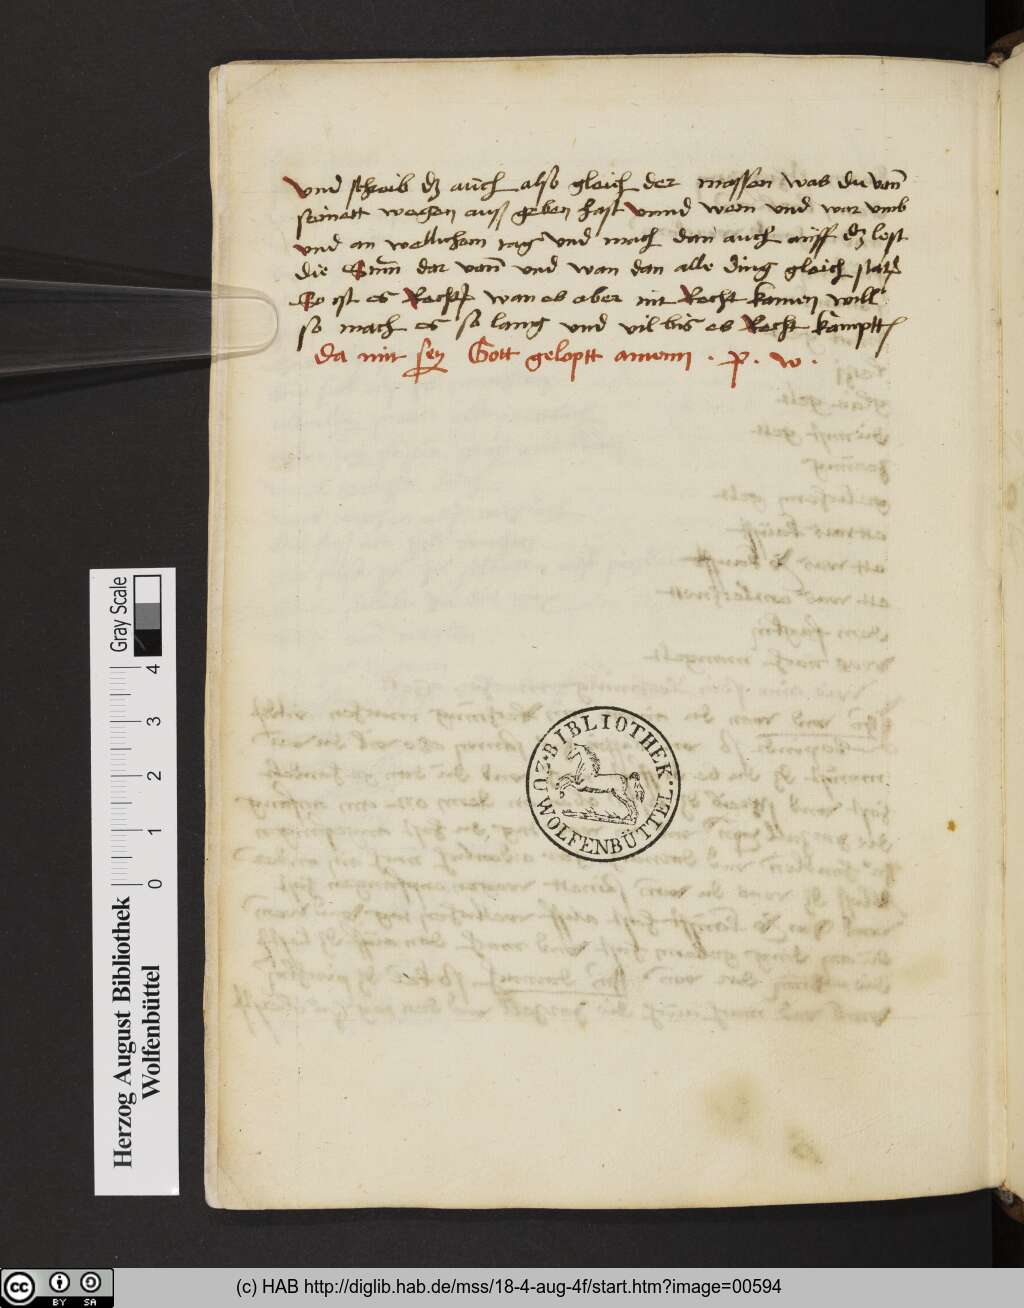 vnd schreib dz auch also gleich der massen was du von
seinett wegen auss geben hast vnnd wem vnd war vmb
vnd an wellichem tag vnd mach dan auch auff dz lest
die Sum dar von vnd wan dan alle ding gleich statt
So ist es Recht wan es aber nit Recht kamen will
so mach es so lang vnd vil bis es Recht kamptt
da mit sey Gott geloptt amenn . p . w .
BIBLIOTHEK · ZU WOLFENBÜTTEL ·
Gray Scale
4
3
2
1
0
Herzog August Bibliothek
Wolfenbüttel
cc BY SA
(c) HAB http://diglib.hab.de/mss/18-4-aug-4f/start.htm?image=00594